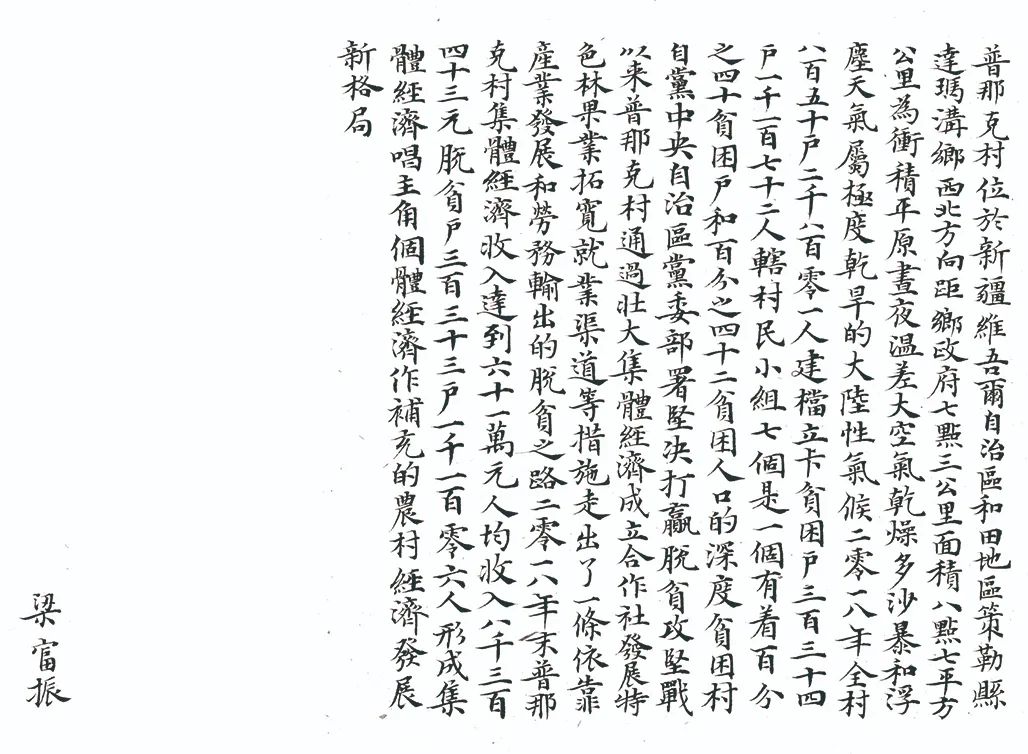 普那克村位於新疆維吾爾自治區和田地區策勒縣
達瑪溝鄉西北方向距鄉政府七點三公里面積八點七平方
公里為衝積平原晝夜温差大空氣乾燥多沙暴和浮
塵天氣屬極度乾旱的大陸性氣候二零一八年全村
八百五十戶二千八百零一人建檔立卡貧困戶三百三十四
戶一千一百七十二人轄村民小組七個是一個有着百分
之四十貧困戶和百分之四十二貧困人口的深度貧困村
自黨中央自治區黨委部署堅决打贏脫貧攻堅戰
以来普那克村通過壯大集體經濟成立合作社發展特
色林果業拓寬就業渠道等措施走出了一條依靠
產業發展和勞務輸出的脫貧之路二零一八年末普那
克村集體經濟收入達到六十一萬元人均收入八千三百
四十三元脫貧戶三百三十三戶一千一百零六人形成集
體經濟唱主角個體經濟作補充的農村經濟發展
新格局
梁富振